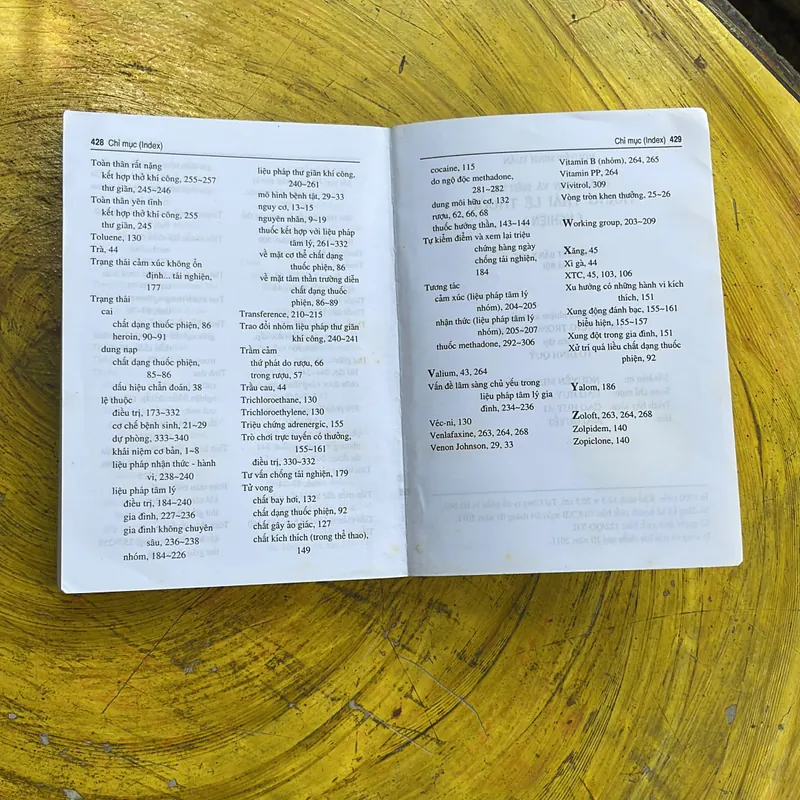 428 Chỉ mục (Index)
Toàn thân rất nặng
kết hợp thở khí công, 255~257
thư giãn, 245~246
Toàn thân yên tĩnh
kết hợp thở khí công, 255
thư giãn, 245
Toluene, 130
Trà, 44
Trạng thái cảm xúc không ổn
định... tái nghiện,
177
Trạng thái
cai
chất dạng thuốc phiện, 86
heroin, 90~91
dung nạp
chất dạng thuốc phiện,
85~86
dấu hiệu chẩn đoán, 38
lệ thuộc
điều trị, 173~332
cơ chế bệnh sinh, 21~29
dự phòng, 333~340
khái niệm cơ bản, 1~8
liệu pháp nhận thức - hành
vi, 238~240
liệu pháp tâm lý
điều trị, 184~240
gia đình, 227~236
gia đình không chuyên
sâu, 236~238
nhóm, 184~226
liệu pháp thư giãn khí công,
240~261
mô hình bệnh tật, 29~33
nguy cơ, 13~15
nguyên nhân, 9~19
thuốc kết hợp với liệu pháp
tâm lý, 261~332
về mặt cơ thể chất dạng
thuốc phiện, 86
về mặt tâm thần trường diễn
chất dạng thuốc
phiện, 86~89
Transference, 210~215
Trao đổi nhóm liệu pháp thư giãn
khí công, 240~241
Trầm cảm
thứ phát do rượu, 66
trong rượu, 57
Trầu cau, 44
Trichloroethane, 130
Trichloroethylene, 130
Triệu chứng adrenergic, 155
Trò chơi trực tuyến có thưởng,
155~161
điều trị, 330~332
Tư vấn chống tái nghiện, 179
Tử vong
chất bay hơi, 132
chất dạng thuốc phiện, 92
chất gây ảo giác, 127
chất kích thích (trong thể thao),
149
Chỉ mục (Index) 429
cocaine, 115
do ngộ độc methadone,
281~282
dung môi hữu cơ, 132
rượu, 62, 66, 68
thuốc hướng thần, 143~144
Tự kiểm điểm và xem lại triệu
chứng hàng ngày
chống tái nghiện,
184
Tương tác
cảm xúc (liệu pháp tâm lý
nhóm), 204~205
nhận thức (liệu pháp tâm lý
nhóm), 205~207
thuốc methadone, 292~306
Valium, 43, 264
Vấn đề lâm sàng chủ yếu trong
liệu pháp tâm lý gia
đình, 234~236
Véc-ni, 130
Venlafaxine, 263, 264, 268
Venon Johnson, 29, 33
Vitamin B (nhóm), 264, 265
Vitamin PP, 264
Vivitrol, 309
Vòng tròn khen thưởng, 25~26
Working group, 203~209
Xăng, 45
Xì gà, 44
XTC, 45, 103, 106
Xu hướng có những hành vi kích
thích, 151
Xung động đánh bạc, 155~161
biểu hiện, 155~157
Xung đột trong gia đình, 151
Xử trí quá liều chất dạng thuốc
phiện, 92
Yalom, 186
Zoloft, 263, 264, 268
Zolpidem, 140
Zopiclone, 140